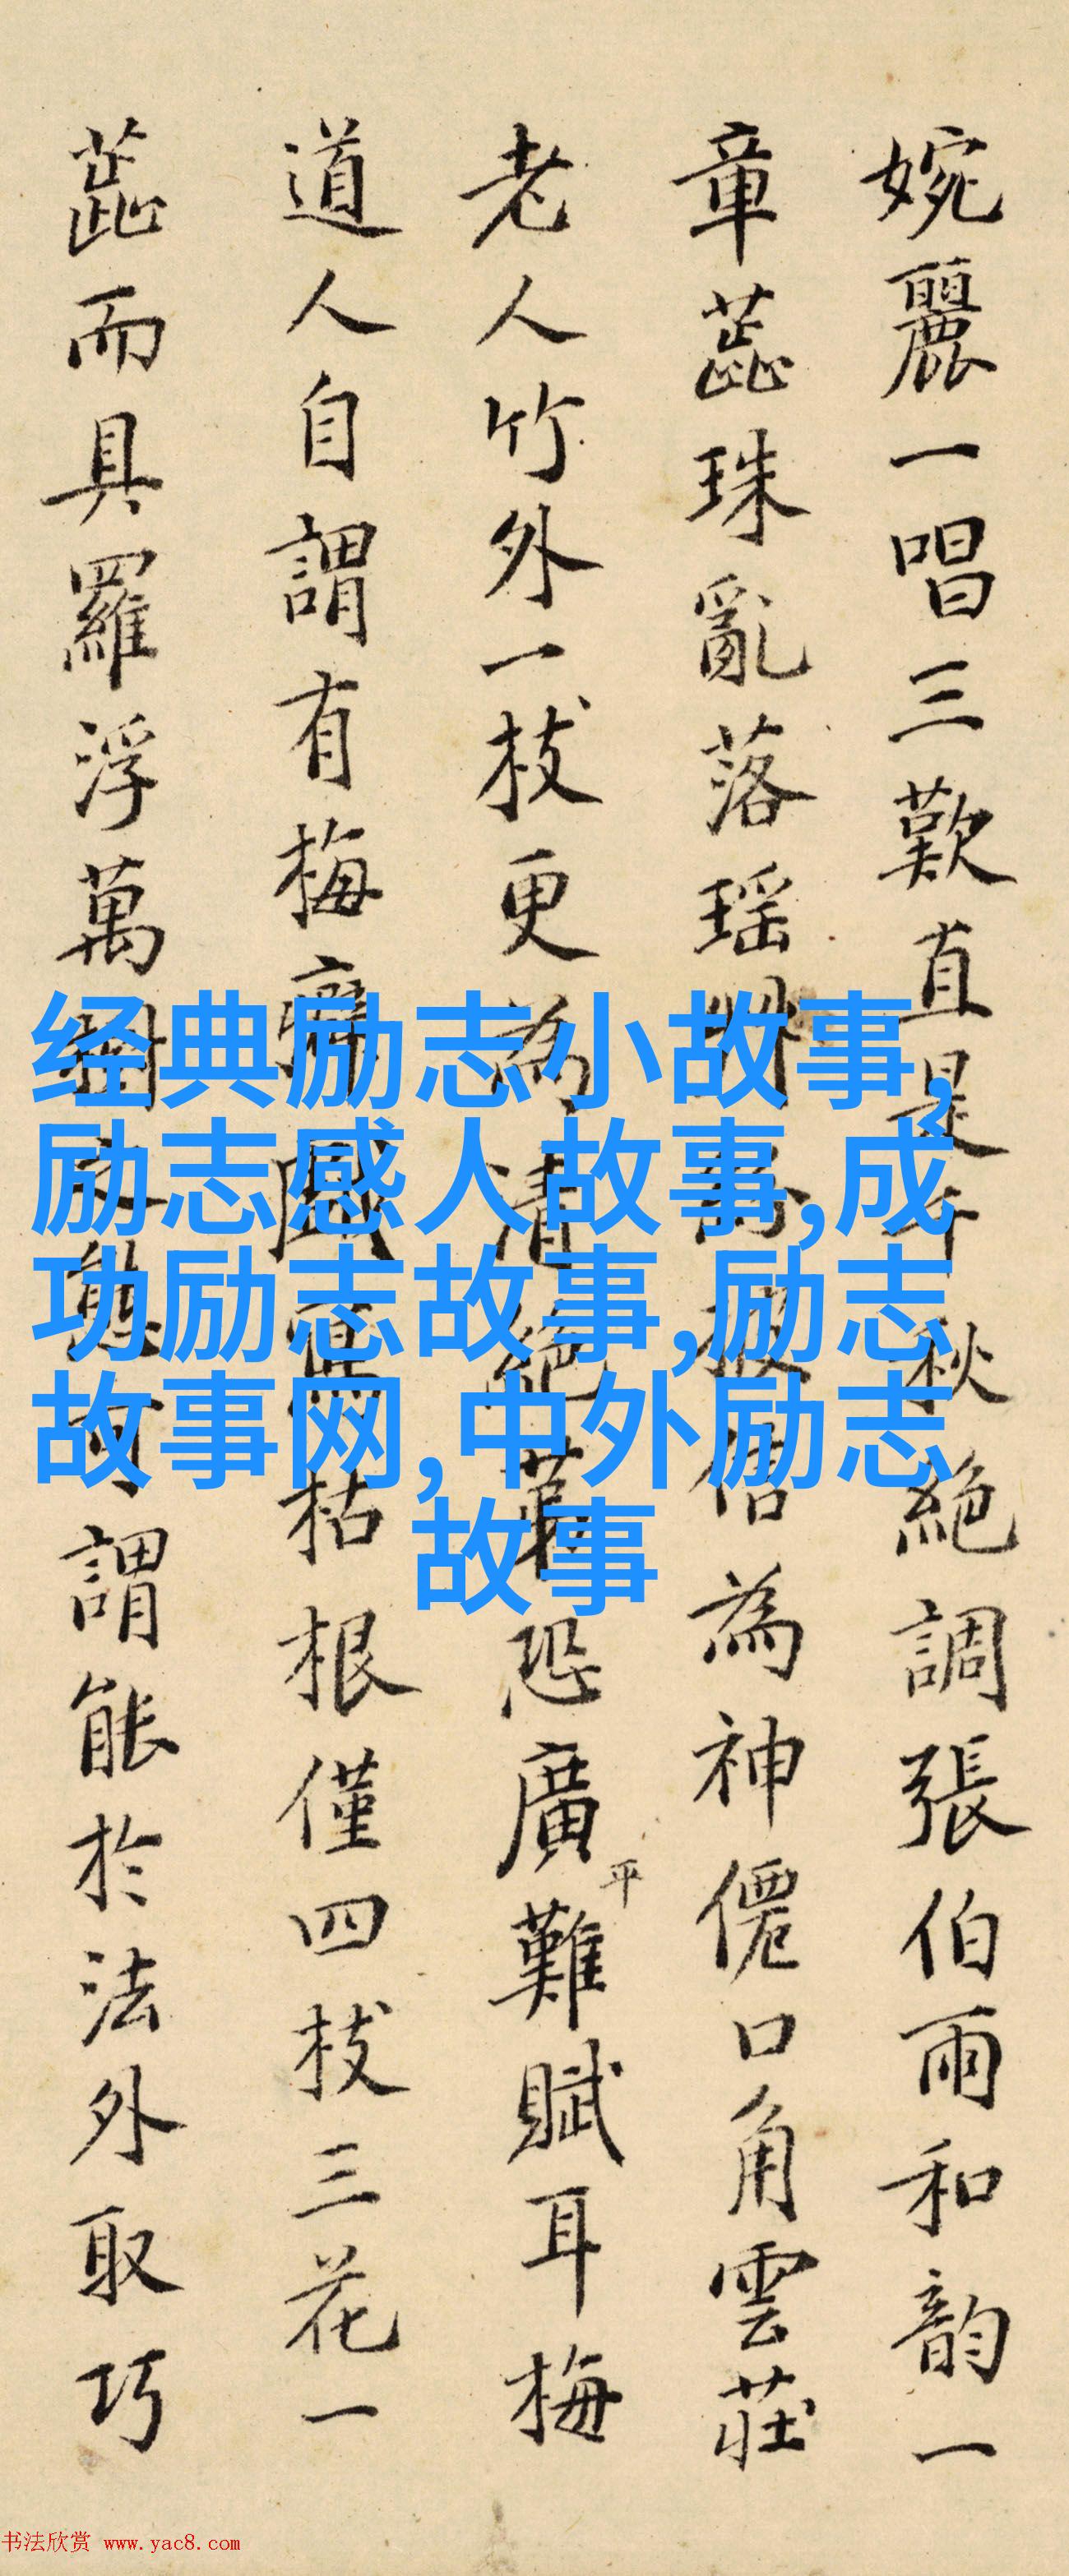 婉麗一唱三歎直是千秋絶調張伯雨和韵一
章蕋珠亂落瑶為神僊口角雲莊
老人竹外一枝更為清絕恐廣平難賦耳梅
道人自謂有梅癖枯根僅四枝三花一
蕋而具羅浮萬謂能於法外取巧
经典励志小故事,
励志感人故事,成
功励志故事,励志
故事网,中外励志
故事
书法欣赏 www.yac8.com